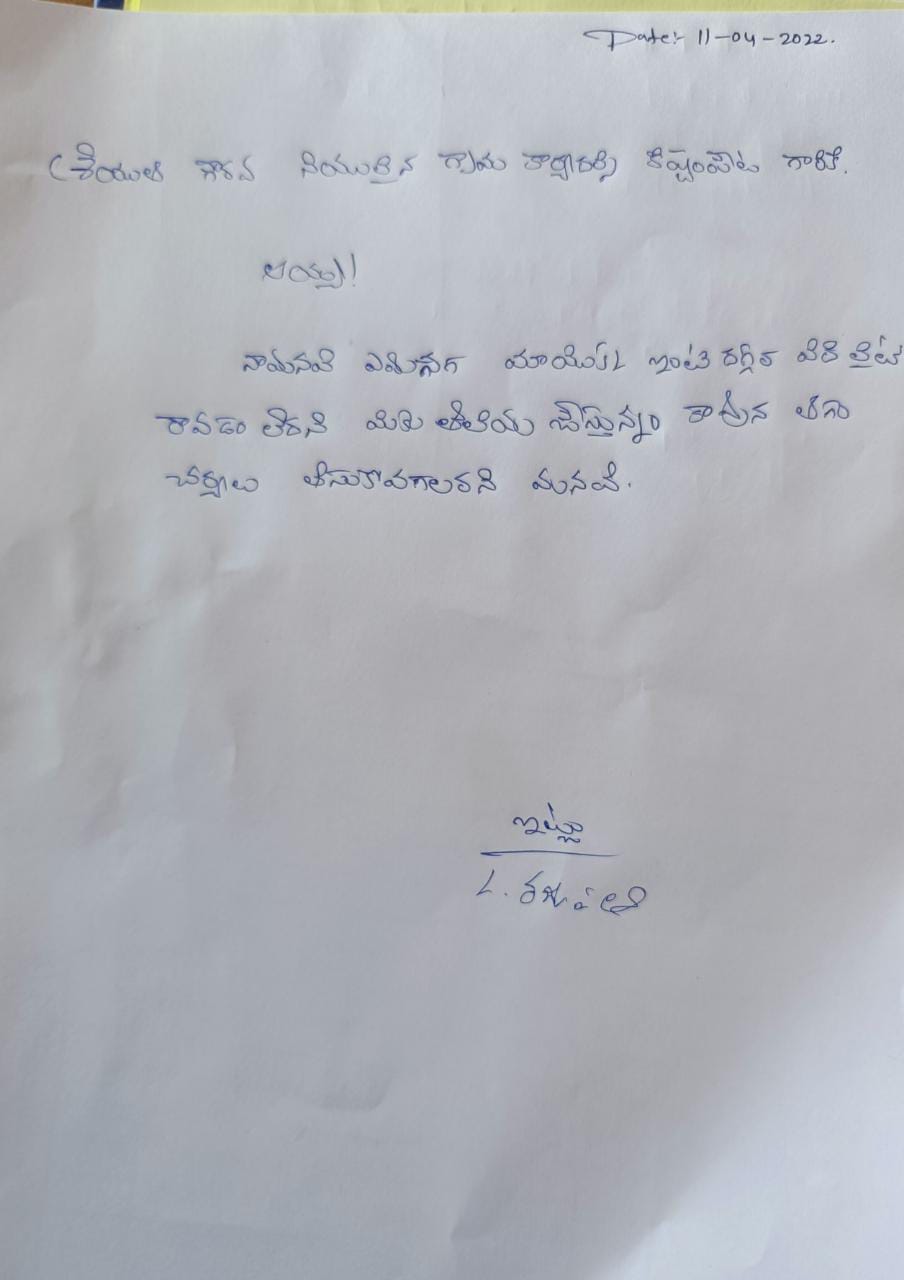 Date:- 11-04-2022.
శ్రీయుత గౌరవ నియుక్తన గ్రామ కార్యదర్శి కిష్టంపేట గారికి.
అయ్యా!
నామనవి ఏమనగా మాయొక్క ఇంటి దగ్గర వీది లైట్
రావడం లేదని మీకు తెలియ చేస్తున్నాం కావున తగు
చర్యలు తీసుకోవగలరని మనవి.
ఇట్లు
L.